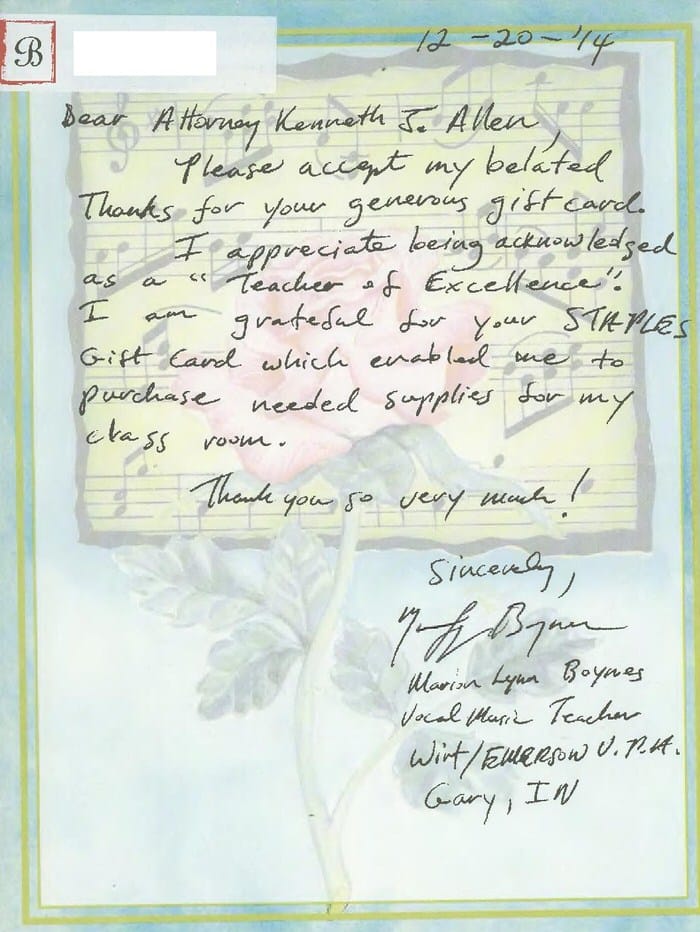 B
12-20-'14
Dear Attorney Kenneth J. Allen,
Please accept my belated
Thanks for your generous gift card.
I appreciate being acknowledged
as a "Teacher of Excellence".
I am grateful for your STAPLES
Gift Card which enabled me to
purchase needed supplies for my
class room.
Thank you so very much!
Sincerely,
Marion Lynn Boynes
Vocal Music Teacher
Wirt/EMERSON V.P.A.
Gary, IN